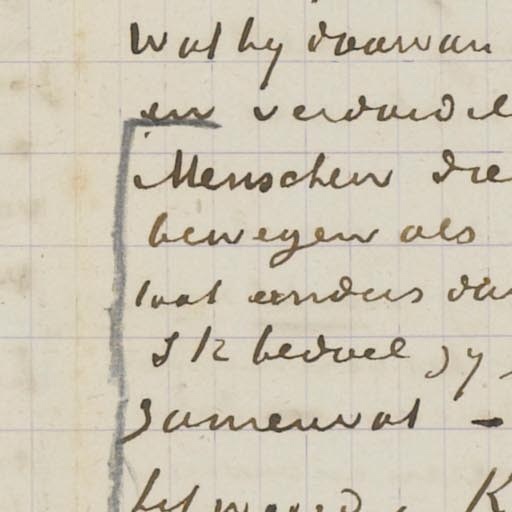 Wat hy daarvan
en verdwiel
Menschen die
bewegen als
wat anders da
Ik bedoel zy
zamenvat –
het woord, K